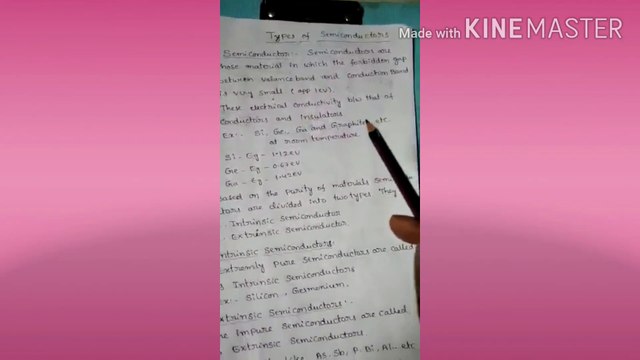 Made with KINEMASTER
Types of Semiconductors
Semiconductor:- Semiconductors are
those material in which the forbidden gap
between valance band and conduction Band
is very small (app 1ev).
These electrical conductivity b/w that of
conductors and insulators
Ex:- Si, Ge, Ga and Graphite, etc
at room temperature
Si - Eg - 1.12eV
Ge - Eg - 0.67eV
Ga - Eg - 1.42eV
Based on the purity of materials
are divided into two types. They
Intrinsic Semiconductor
Extrinsic Semiconductor
Intrinsic Semiconductors
Extremly pure semiconductors are called
Intrinsic Semiconductors
Ex:- Silicon, Germenium.
Extrinsic Semiconductors:-
Impure Semiconductors are called
Extrinsic Semiconductors
As, Sb, P, Bi, Al... etc